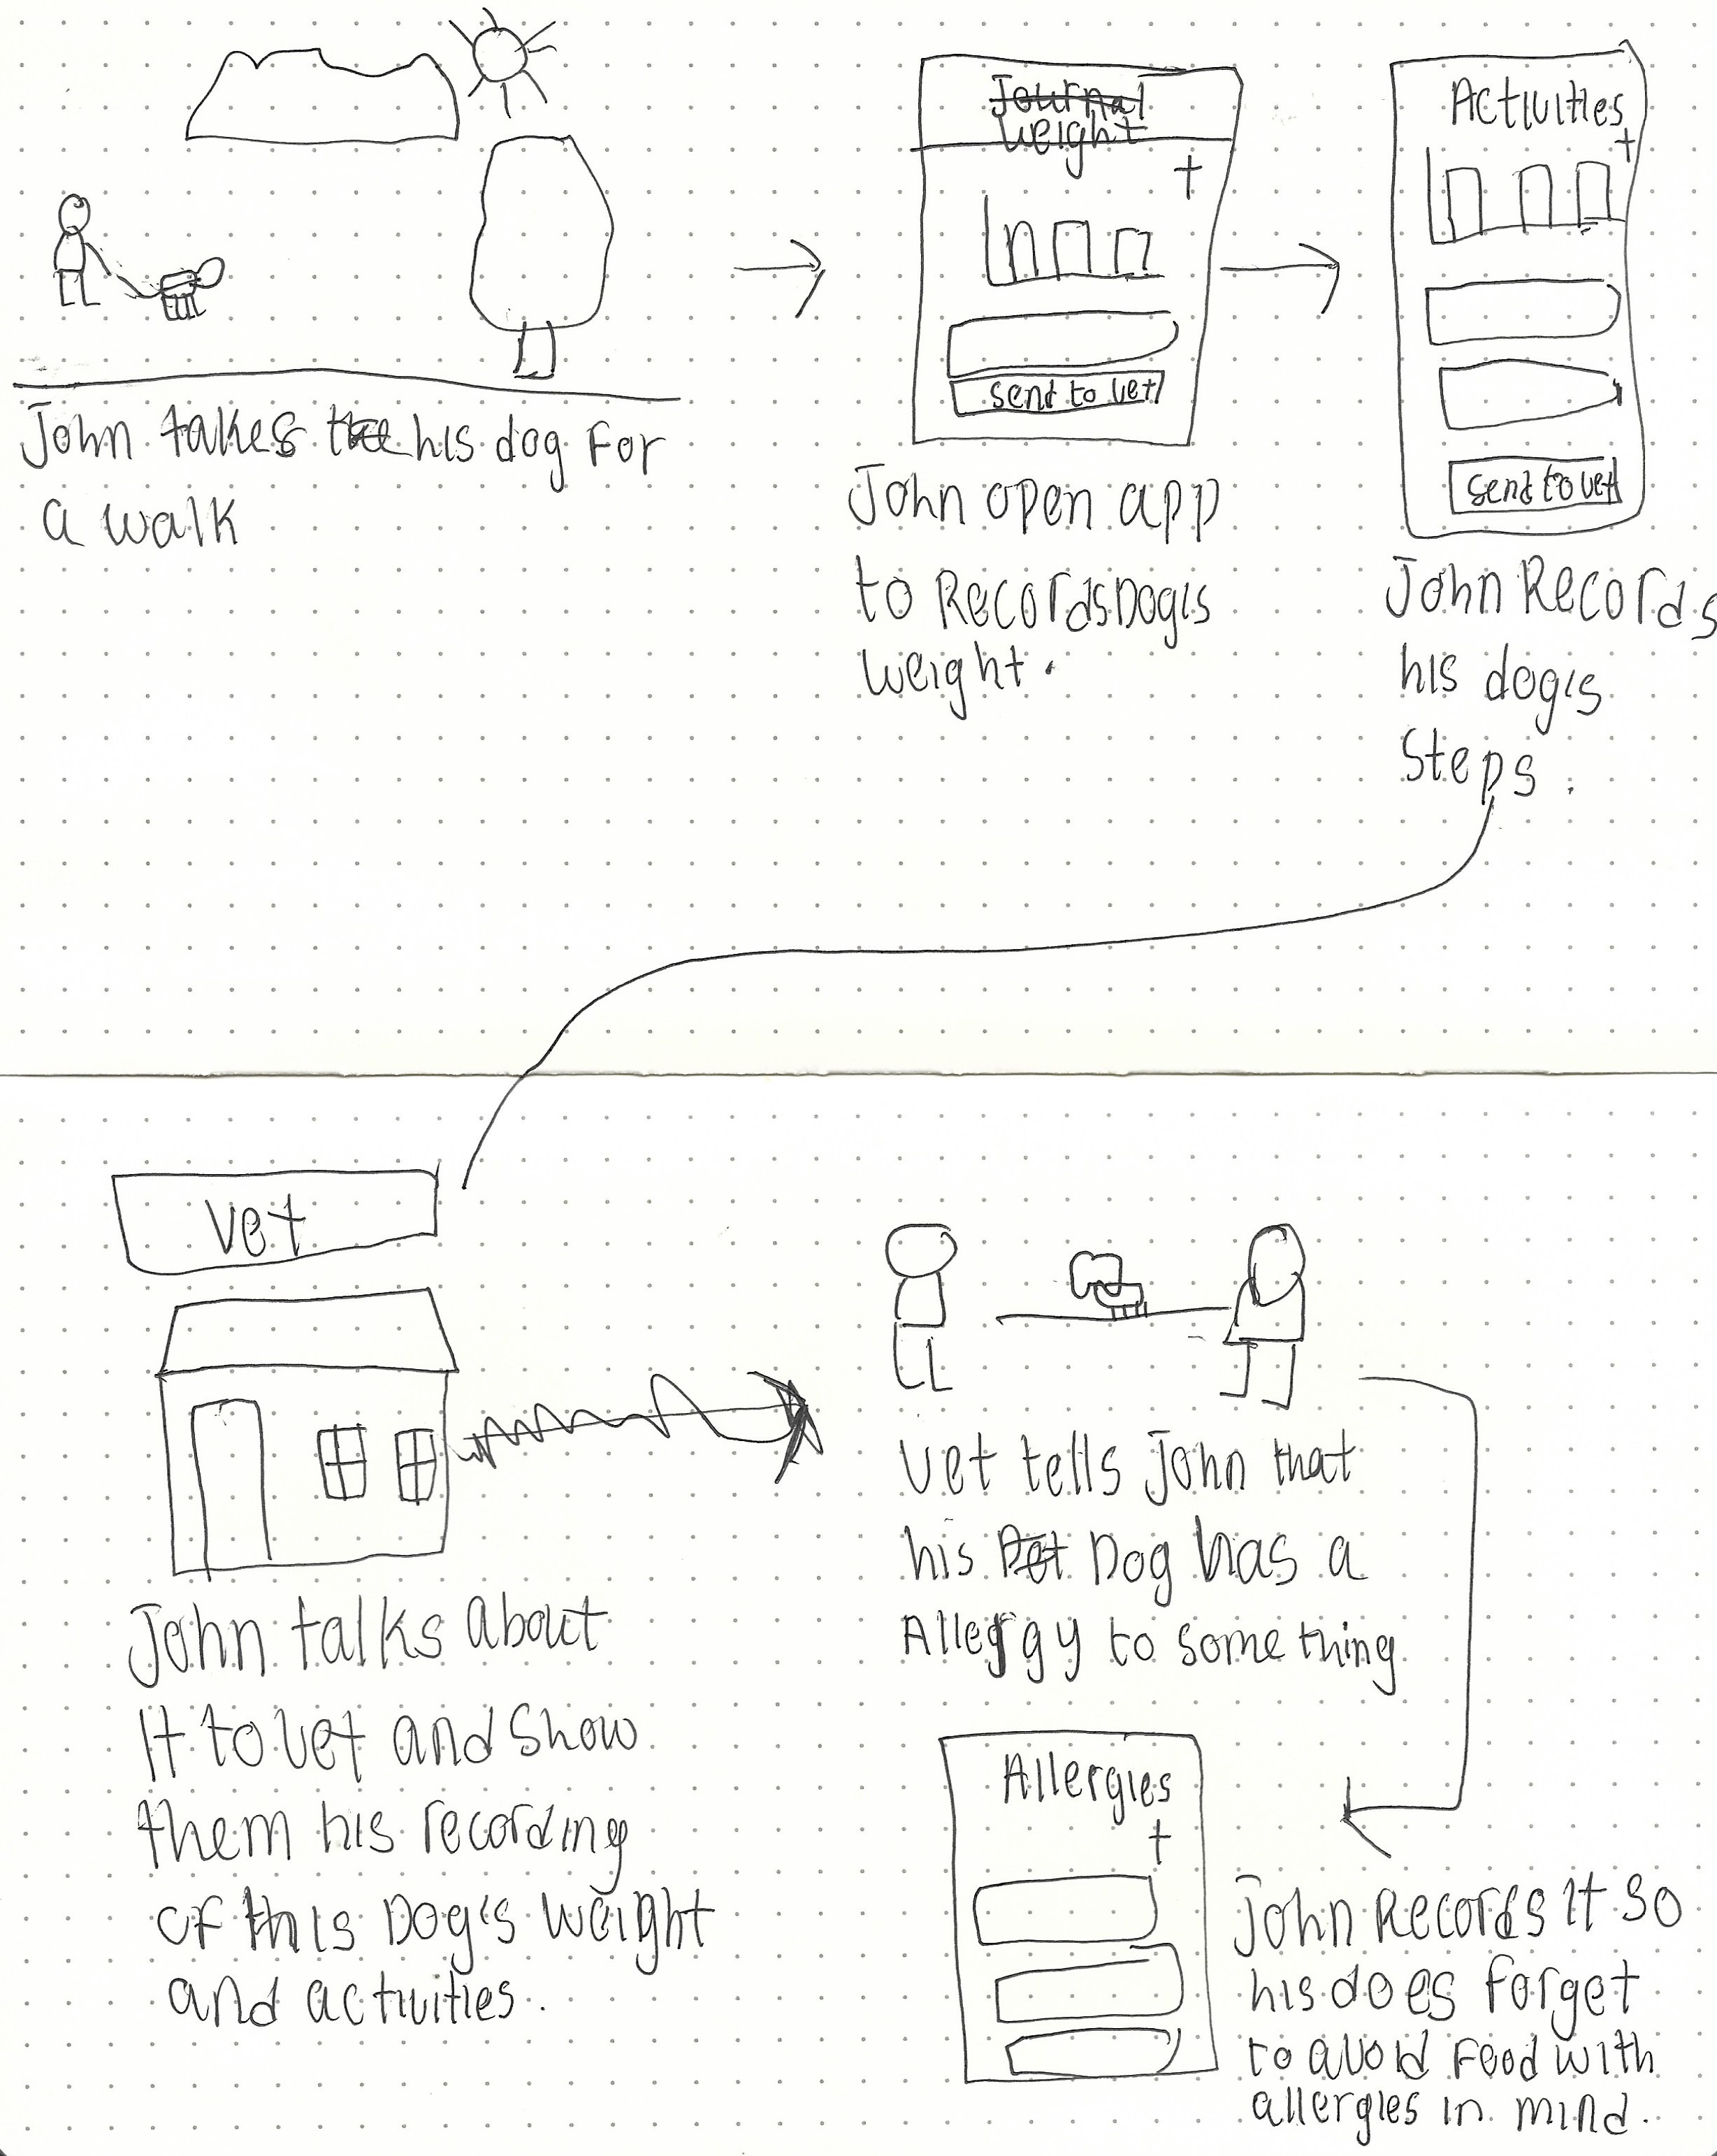 John takes the his dog for
a walk
Journal
weight
+
send to vet
John open app
to Records Dog's
weight.
Activities
+
send to vet
John Records
his dog's
Steps.
Vet
John talks about
it to vet and show
them his recording
of this Dog's weight
and activities.
Vet tells John that
his Pet Dog has a
Allergy to something
Allergies
+
John Records it so
his does forget
to avoid food with
allergies in mind.